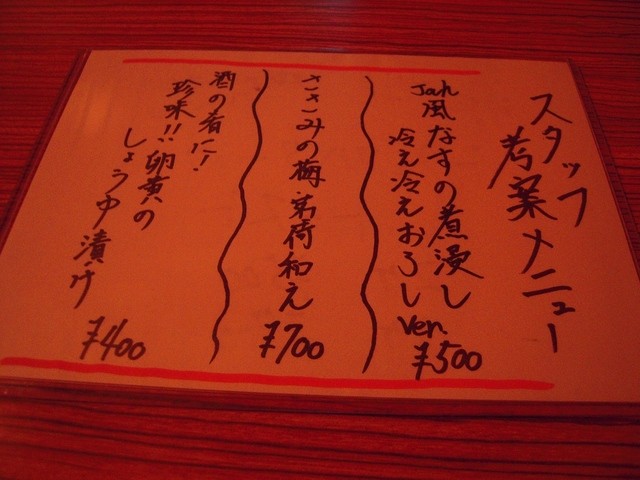 スタッフ
考案メニュー
Jah風なすの煮浸し
冷え冷えおろし Ver.
¥500
ささみの梅茗荷和え
¥700
酒の肴に!
珍味!! 卵黄の
しょうゆ漬け
¥400